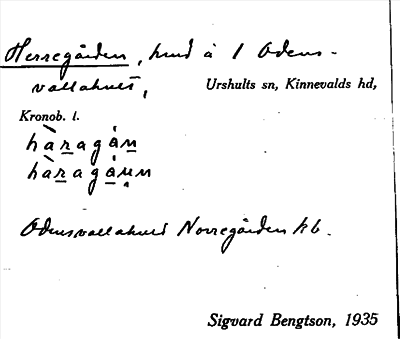 Herregården, hmd å 1 Odens-
vallahult, Urshults sn, Kinnevalds hd,
Kronob. l.
hàragán
hàragáun
Odensvallahult Norregården kb.
Sigvard Bengtson, 1935